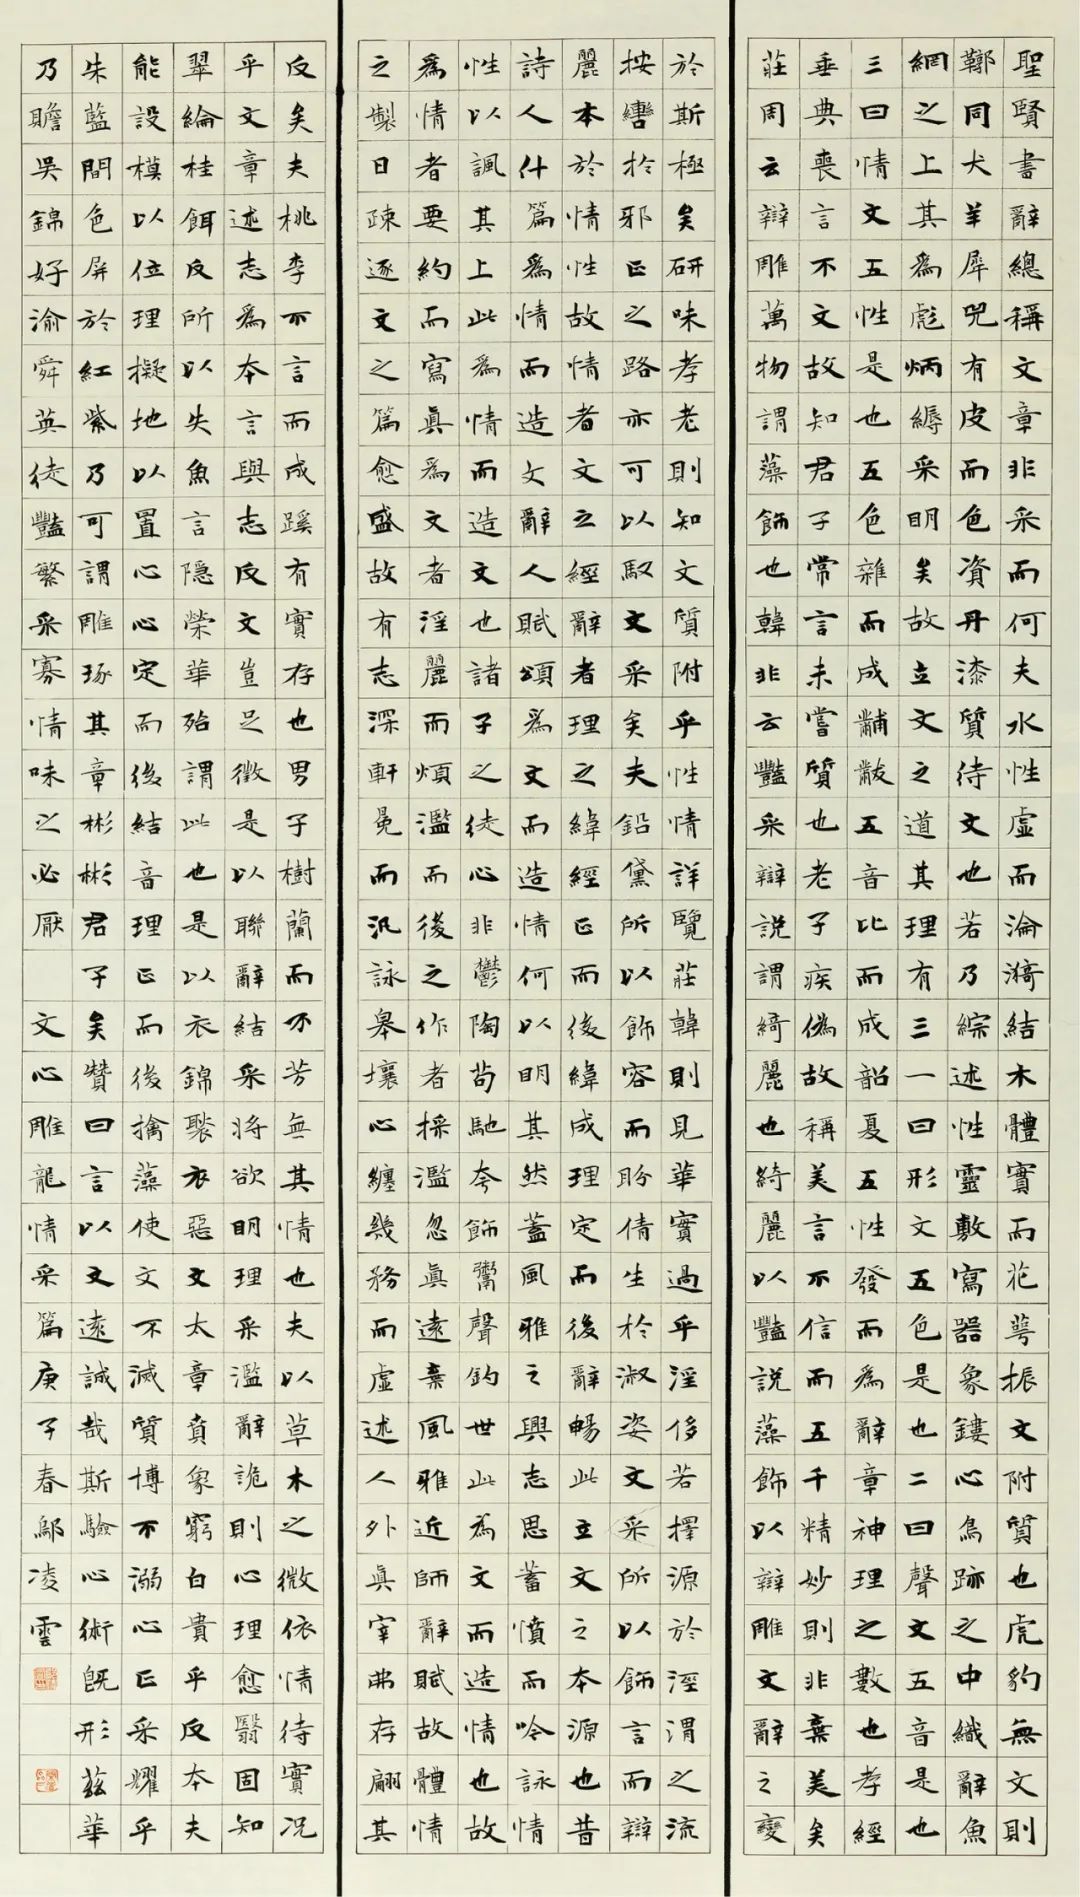 聖賢書辭總稱文章非采而何夫水性虛而淪漪結木體實而花萼振文附質也虎豹無文則
鞹同犬羊犀兕有皮而色資丹漆質待文也若乃綜述性靈敷寫器象鏤心鳥跡之中織辭魚
網之上其爲彪炳縟采明矣故立文之道其理有三一曰形文五色是也二曰聲文五音是也
三曰情文五性是也五色雜而成黼黻五音比而成韶夏五性發而爲辭章神理之數也孝經
垂典喪言不文故知君子常言未嘗質也老子疾偽故稱美言不信而五千精妙則非棄美矣
莊周云辯雕萬物謂藻飾也韓非云豔采辯說謂綺麗也綺麗以豔說藻飾以辯雕文辭之變
於斯極矣研味孝老則知文質附乎性情詳覽莊韓則見華實過乎淫侈若擇源於涇渭之流
按轡於邪正之路亦可以馭文采矣夫鉛黛所以飾容而盼倩生於淑姿文采所以飾言而辯
麗本於情性故情者文之經辭者理之緯經正而後緯成理定而後辭暢此立文之本源也昔
詩人什篇爲情而造文辭人賦頌爲文而造情何以明其然蓋風雅之興志思蓄憤而吟詠情
性以諷其上此爲情而造文也諸子之徒心非鬱陶苟馳夸飾鬻聲釣世此爲文而造情也故
爲情者要約而寫眞爲文者淫麗而煩濫而後之作者採濫忽眞遠棄風雅近師辭賦故體情
之製日疎逐文之篇愈盛故有志深軒冕而汎詠皋壤心纏幾務而虛述人外眞宰弗存翩其
反矣夫桃李不言而成蹊有實存也男子樹蘭而不芳無其情也夫以草木之微依情待實況
乎文章述志爲本言與志反文豈足徵是以聯辭結采將欲明理采濫辭詭則心理愈翳固知
翠綸桂餌反所以失魚言隱榮華殆謂此也是以衣錦褧衣惡文太章賁象窮白貴乎反本夫
能設模以位理擬地以置心心定而後結音理正而後摛藻使文不滅質博不溺心正采耀乎
朱藍間色屏於紅紫乃可謂雕琢其章彬彬君子矣贊曰言以文遠誠哉斯驗心術既形茲華
乃贍吳錦好渝舜英徒豔繁采寡情味之必厭 文心雕龍情采篇庚子春鄔凌雲